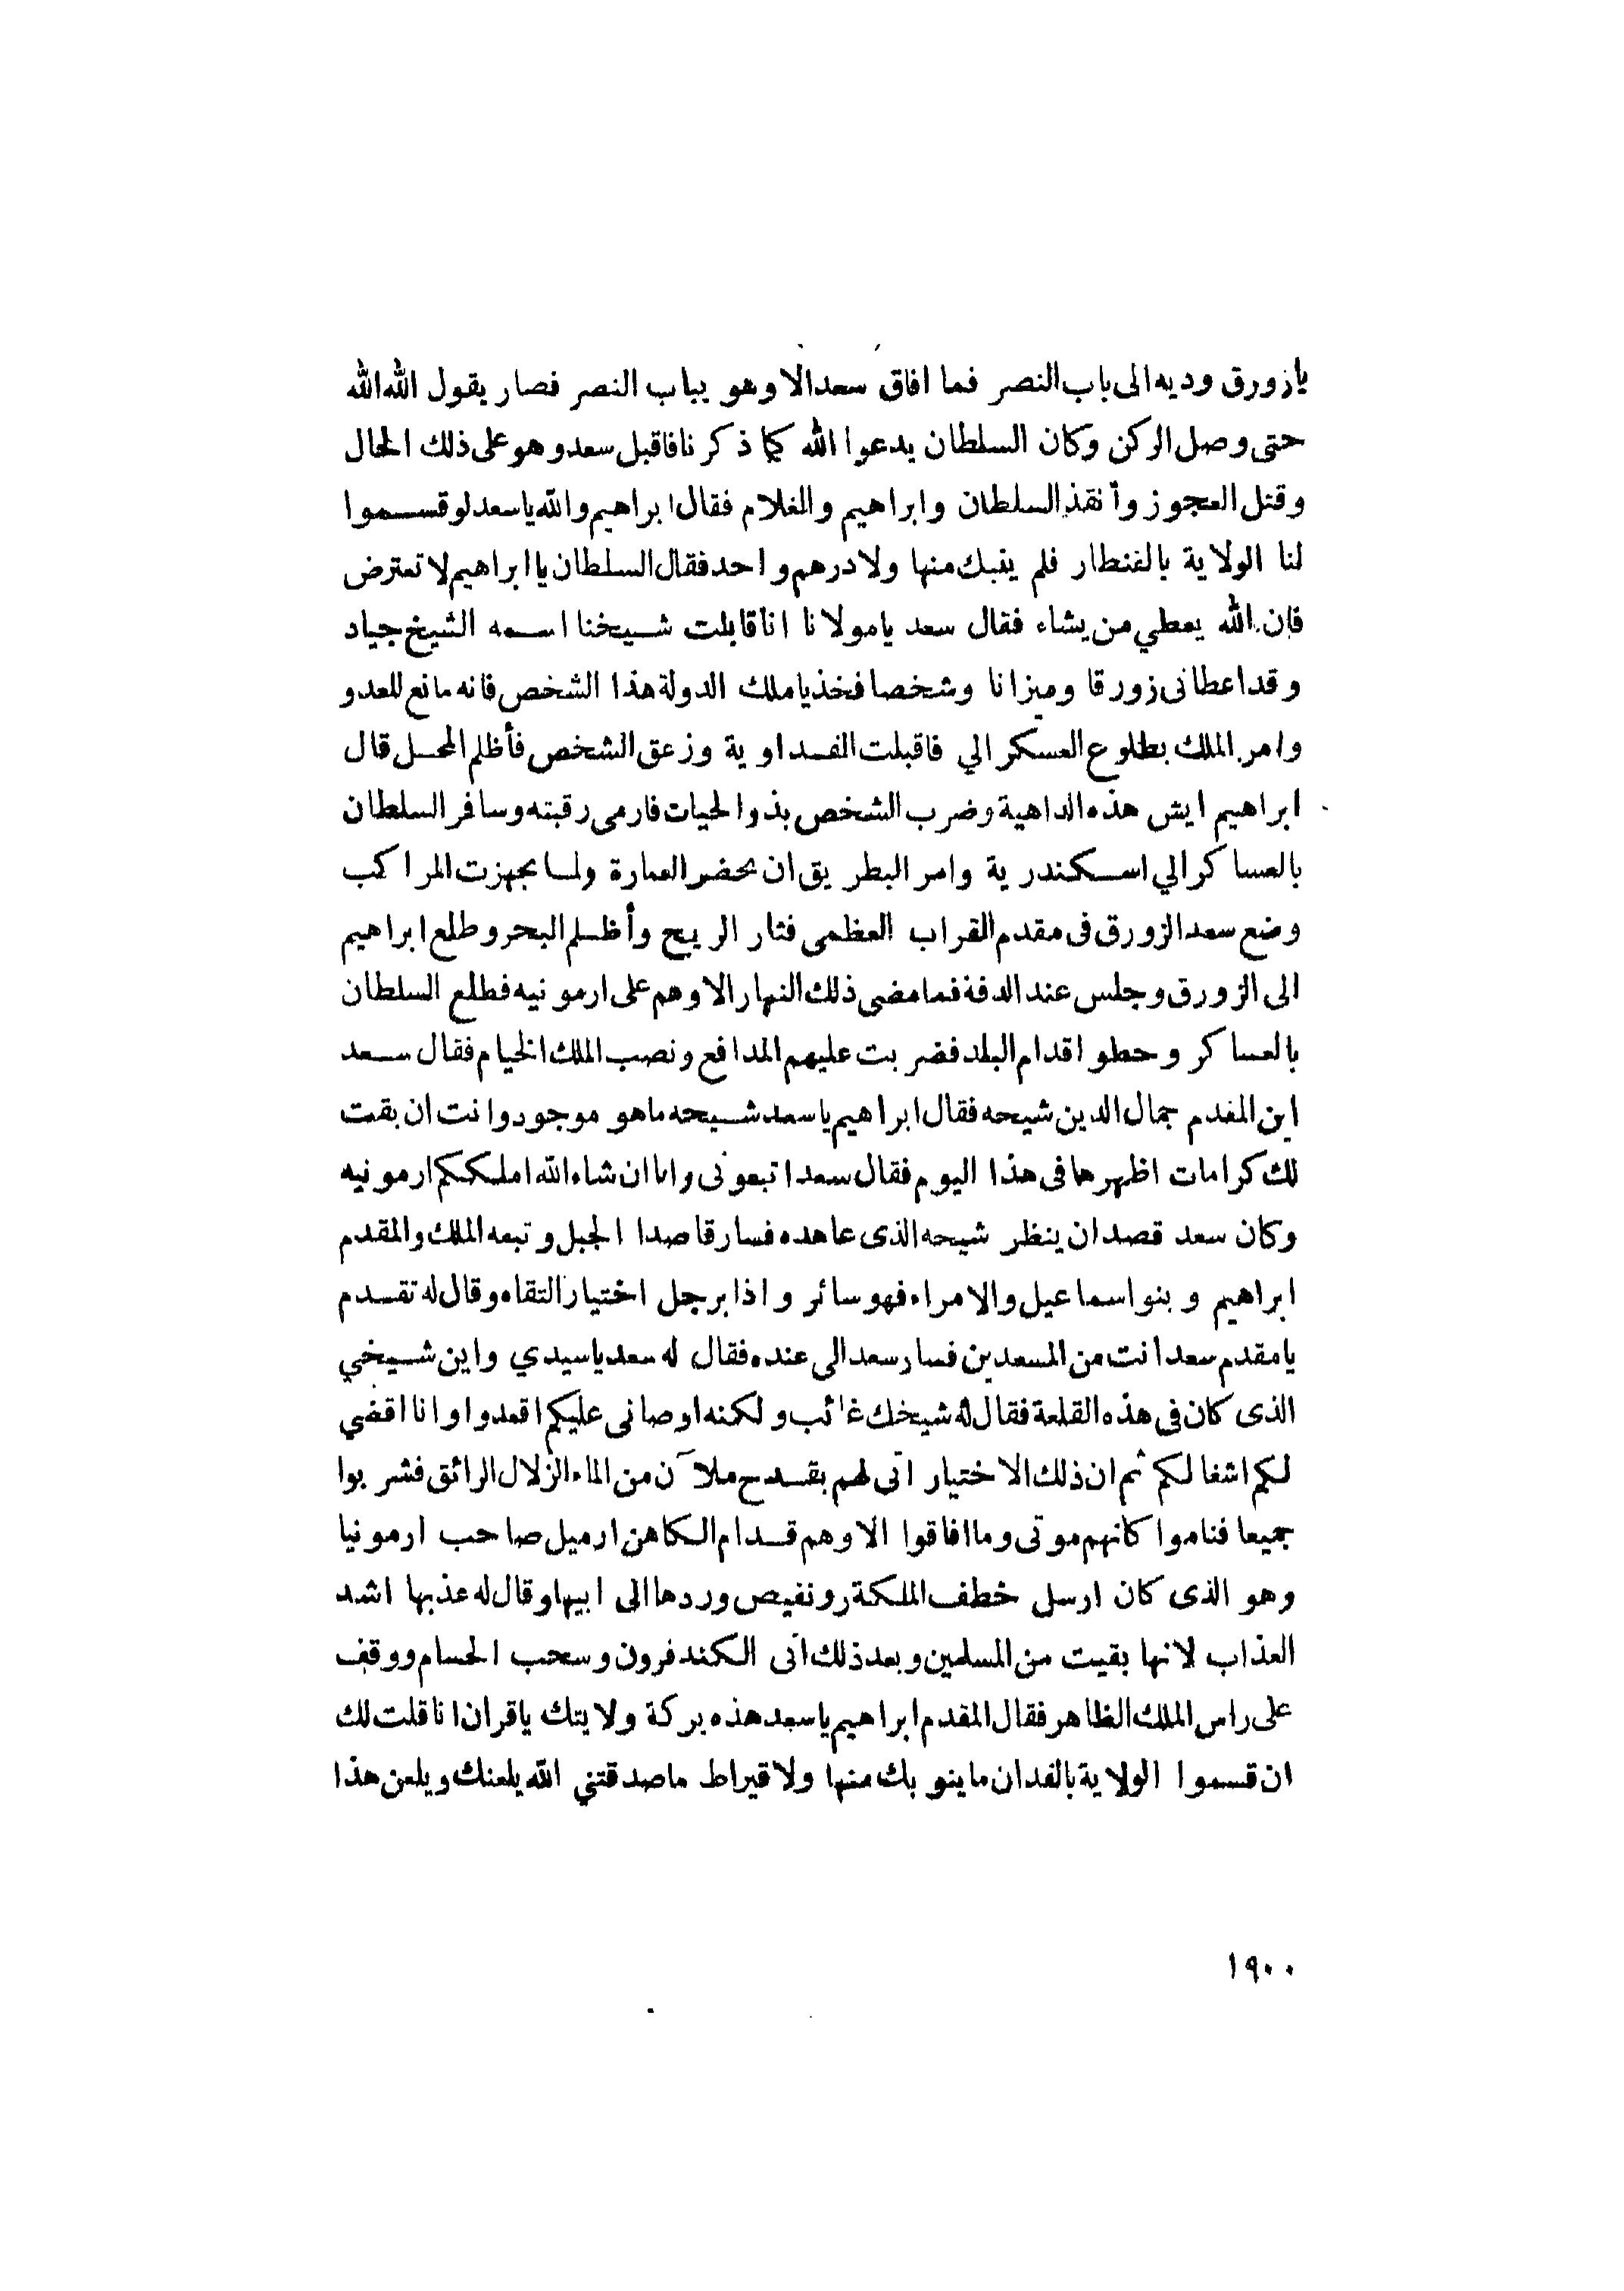 يازورق وديه الى باب النصر فما افاق سعد الا وهو بباب النصر فصار يقول الله الله
حتى وصل الركن وكان السلطان يدعوا الله كما ذكرنا فاقبل سعد وهو على ذلك الحال
وقتل العجوز وأنقذ السلطان وابراهيم والغلام فقال ابراهيم والله ياسعد لو قسموا
لنا الولاية بالقنطار فلم ينبك منها ولا درهم واحد فقال السلطان يا ابراهيم لا تعترض
فان الله يعطي من يشاء فقال سعد يامولانا انا قابلت شيخنا اسمه الشيخ جياد
وقد اعطانى زورقا وميزانا وشخصا فخذ ياملك الدولة هذا الشخص فانه مانع للعدو
وامر الملك بطلوع العسكر الي فاقبلت الفداوية وزعق الشخص فأظلم المحل قال
ابراهيم ايش هذه الداهية وضرب الشخص بذوالحيات فارمى رقبته وسافر السلطان
بالعساكر الي اسكندرية وامر البطريق ان يحضر العمارة ولما تجهزت المراكب
وضع سعد الزورق فى مقدم القراب العظمى فثار الريح وأظلم البحر وطلع ابراهيم
الى الزورق وجلس عند الدفة فما مضى ذلك النهار الا وهم على ارمونيه فطلع السلطان
بالعساكر وحطو اقدام البلد فضربت عليهم المدافع ونصب الملك الخيام فقال سعد
اين المقدم جمال الدين شيحه فقال ابراهيم ياسعد شيحه ماهو موجود وانت ان بقت
لك كرامات اظهرها فى هذا اليوم فقال سعد اتبعونى وانا ان شاء الله املككم ارمونيه
وكان سعد قصد ان ينظر شيحه الذى عاهده فسار قاصدا الجبل وتبعه الملك والمقدم
ابراهيم وبنو اسماعيل والامراء فهو سائر واذا برجل اختيار التقاه وقال له تقدم
يامقدم سعد انت من المسعدين فسار سعد الى عنده فقال له سعد ياسيدي واين شيخي
الذى كان فى هذه القلعة فقال له شيخك غائب ولكنه اوصانى عليكم اقعدوا وانا اقضي
لكم اشغالكم ثم ان ذلك الاختيار اتى لهم بقدح ملآن من الماء الزلال الرائق فشربوا
جميعا فناموا كانهم موتى وما افاقوا الا وهم قدام الكاهن ارميل صاحب ارمونيا
وهو الذى كان ارسل خطف الملكة رونفيص وردها الى ابيها وقال له عذبها اشد
العذاب لانها بقيت من المسلمين وبعد ذلك اتى الكندفرون وسحب الحسام ووقف
على راس الملك الظاهر فقال المقدم ابراهيم ياسعد هذه بركة ولايتك ياقران انا قلت لك
ان قسموا الولاية بالفدان ماينوبك منها ولا قيراط ماصدقتني الله يلعنك ويلعن هذا
١٩٠٠